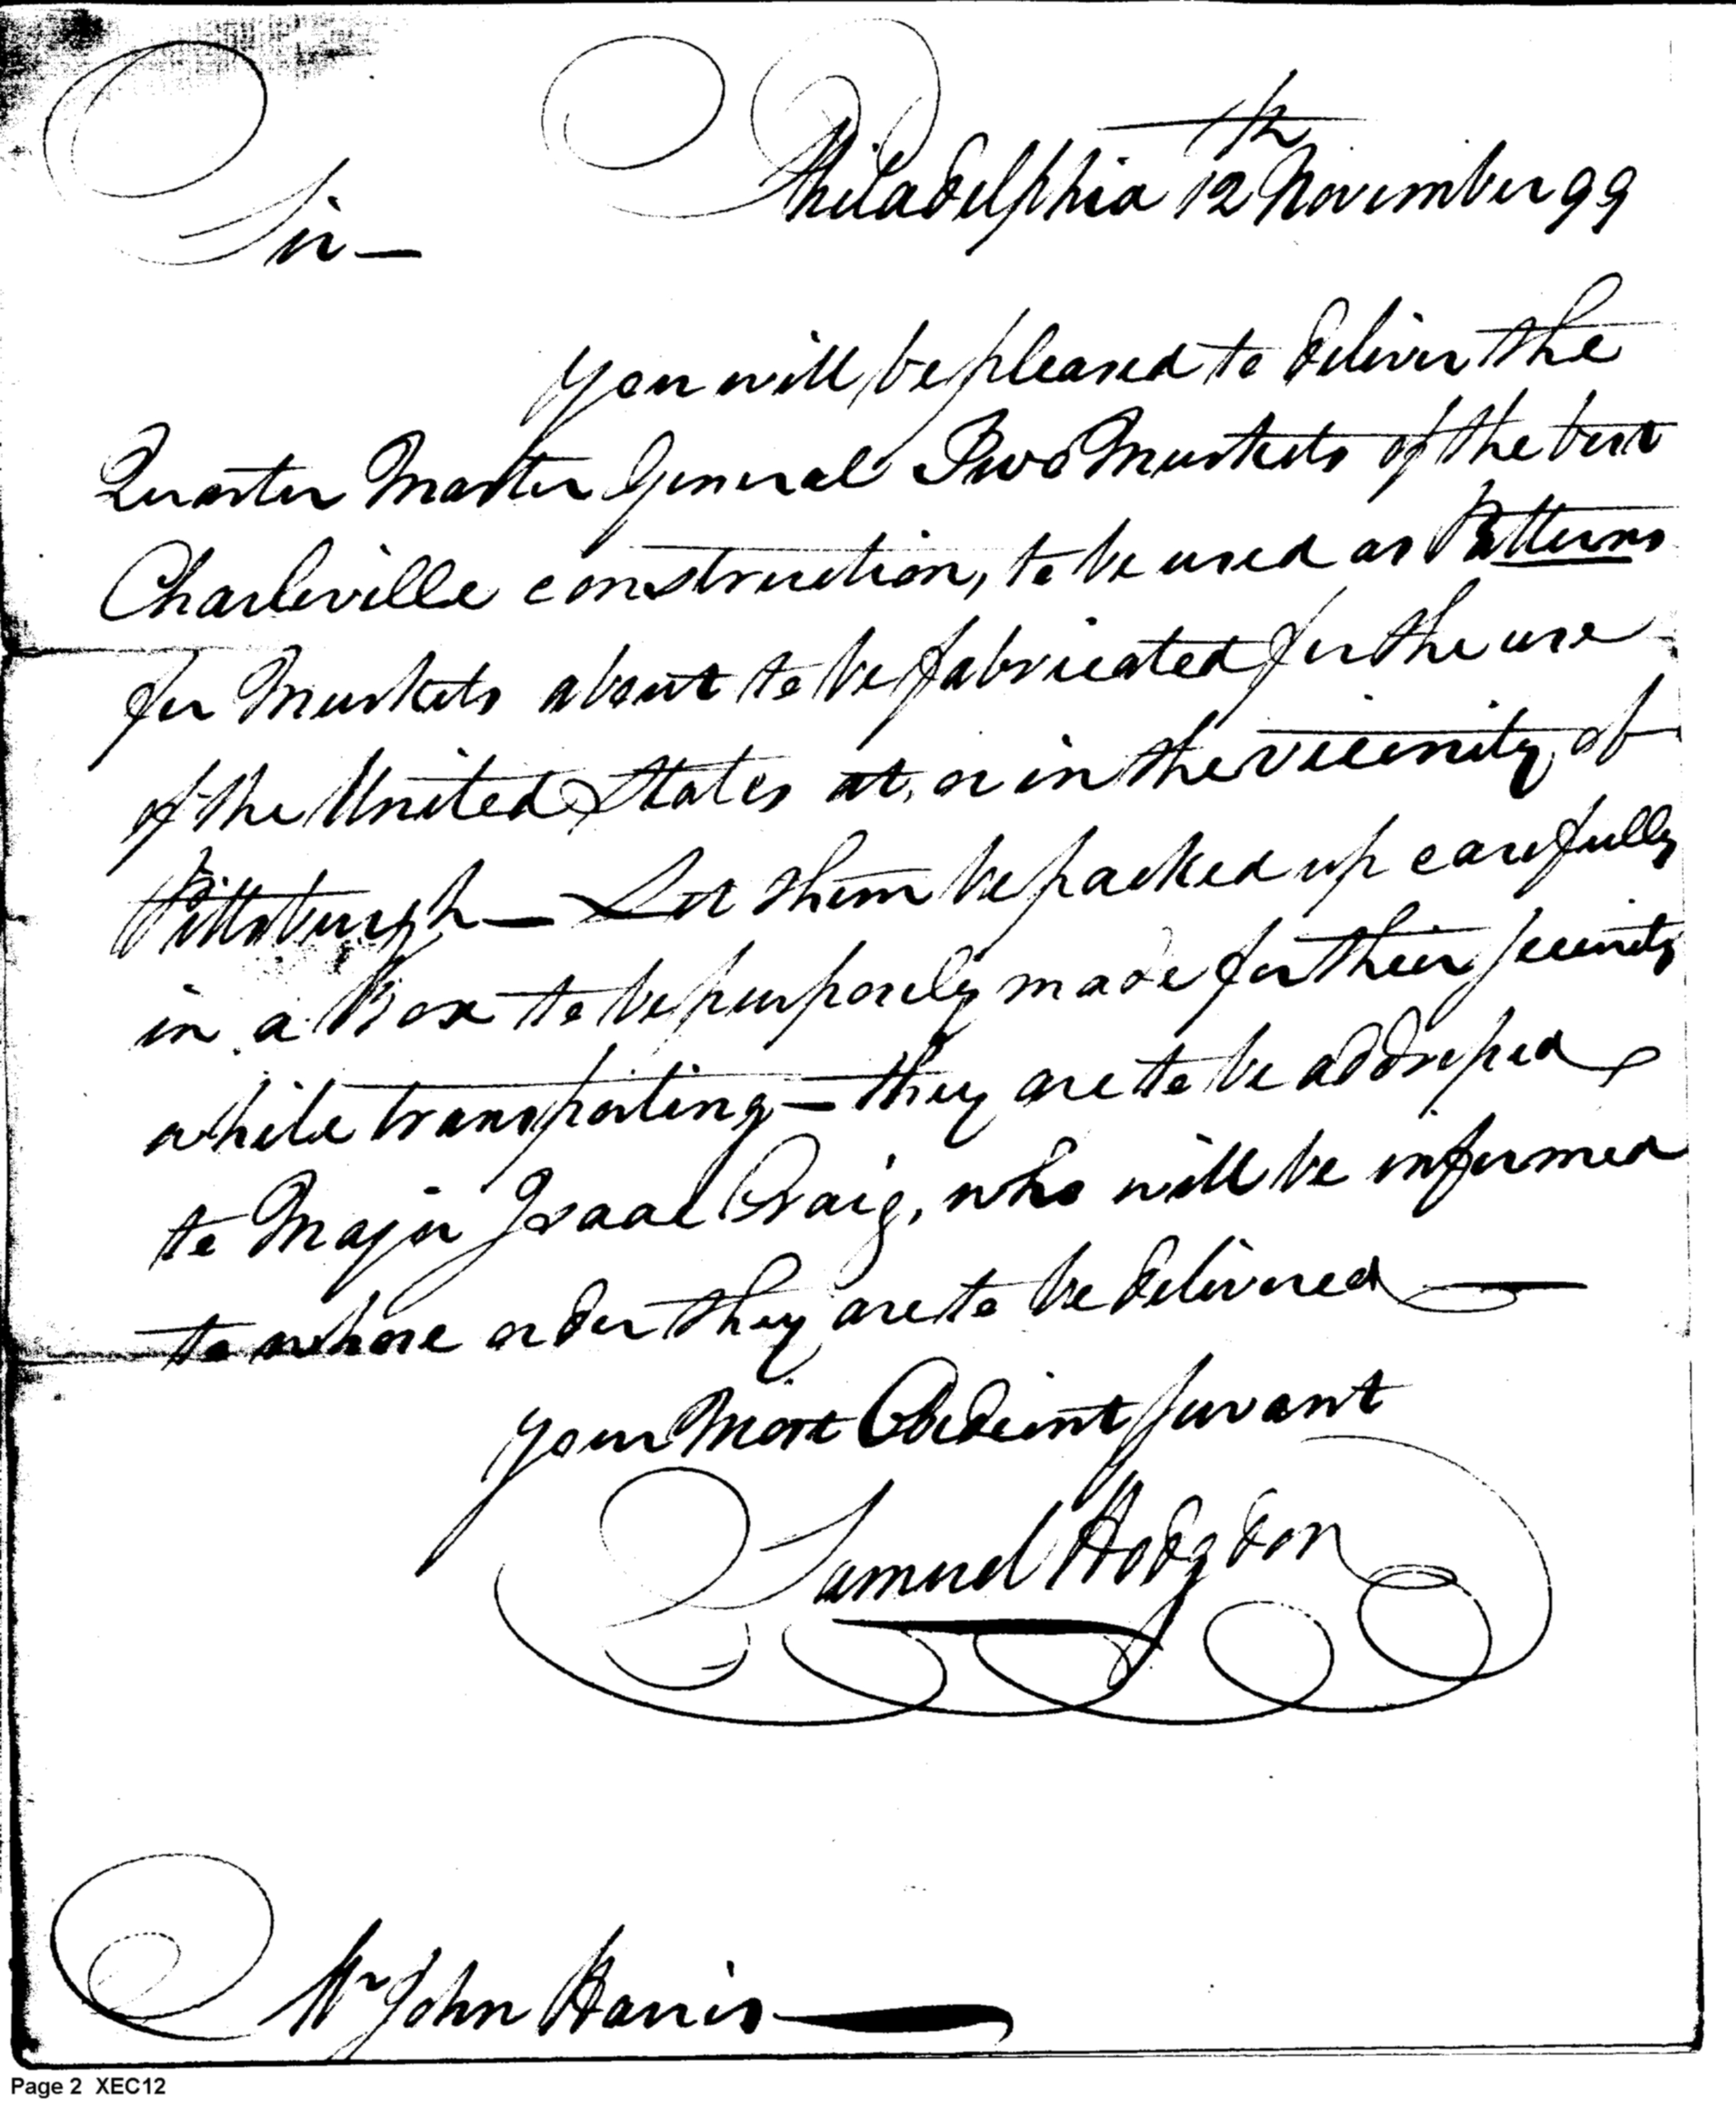 Philadelphia 12th November 99
Sir—
you will be pleased to deliver the
Quarter Master General Two Muskets of the best
Charleville construction, to be used as Patterns
for Muskets about to be fabricated for the use
of the United States at, or in the vicinity of
Pittsburgh — Let them be packed up carefully
in a Box to be purposely made for their security
while transporting — they are to be addressed
to Major Isaac Craig, who will be informed
to whose order they are to be delivered —
your most Obedient servant
Samuel Hodgdon
Mr John Harris —
Page 2 XEC12